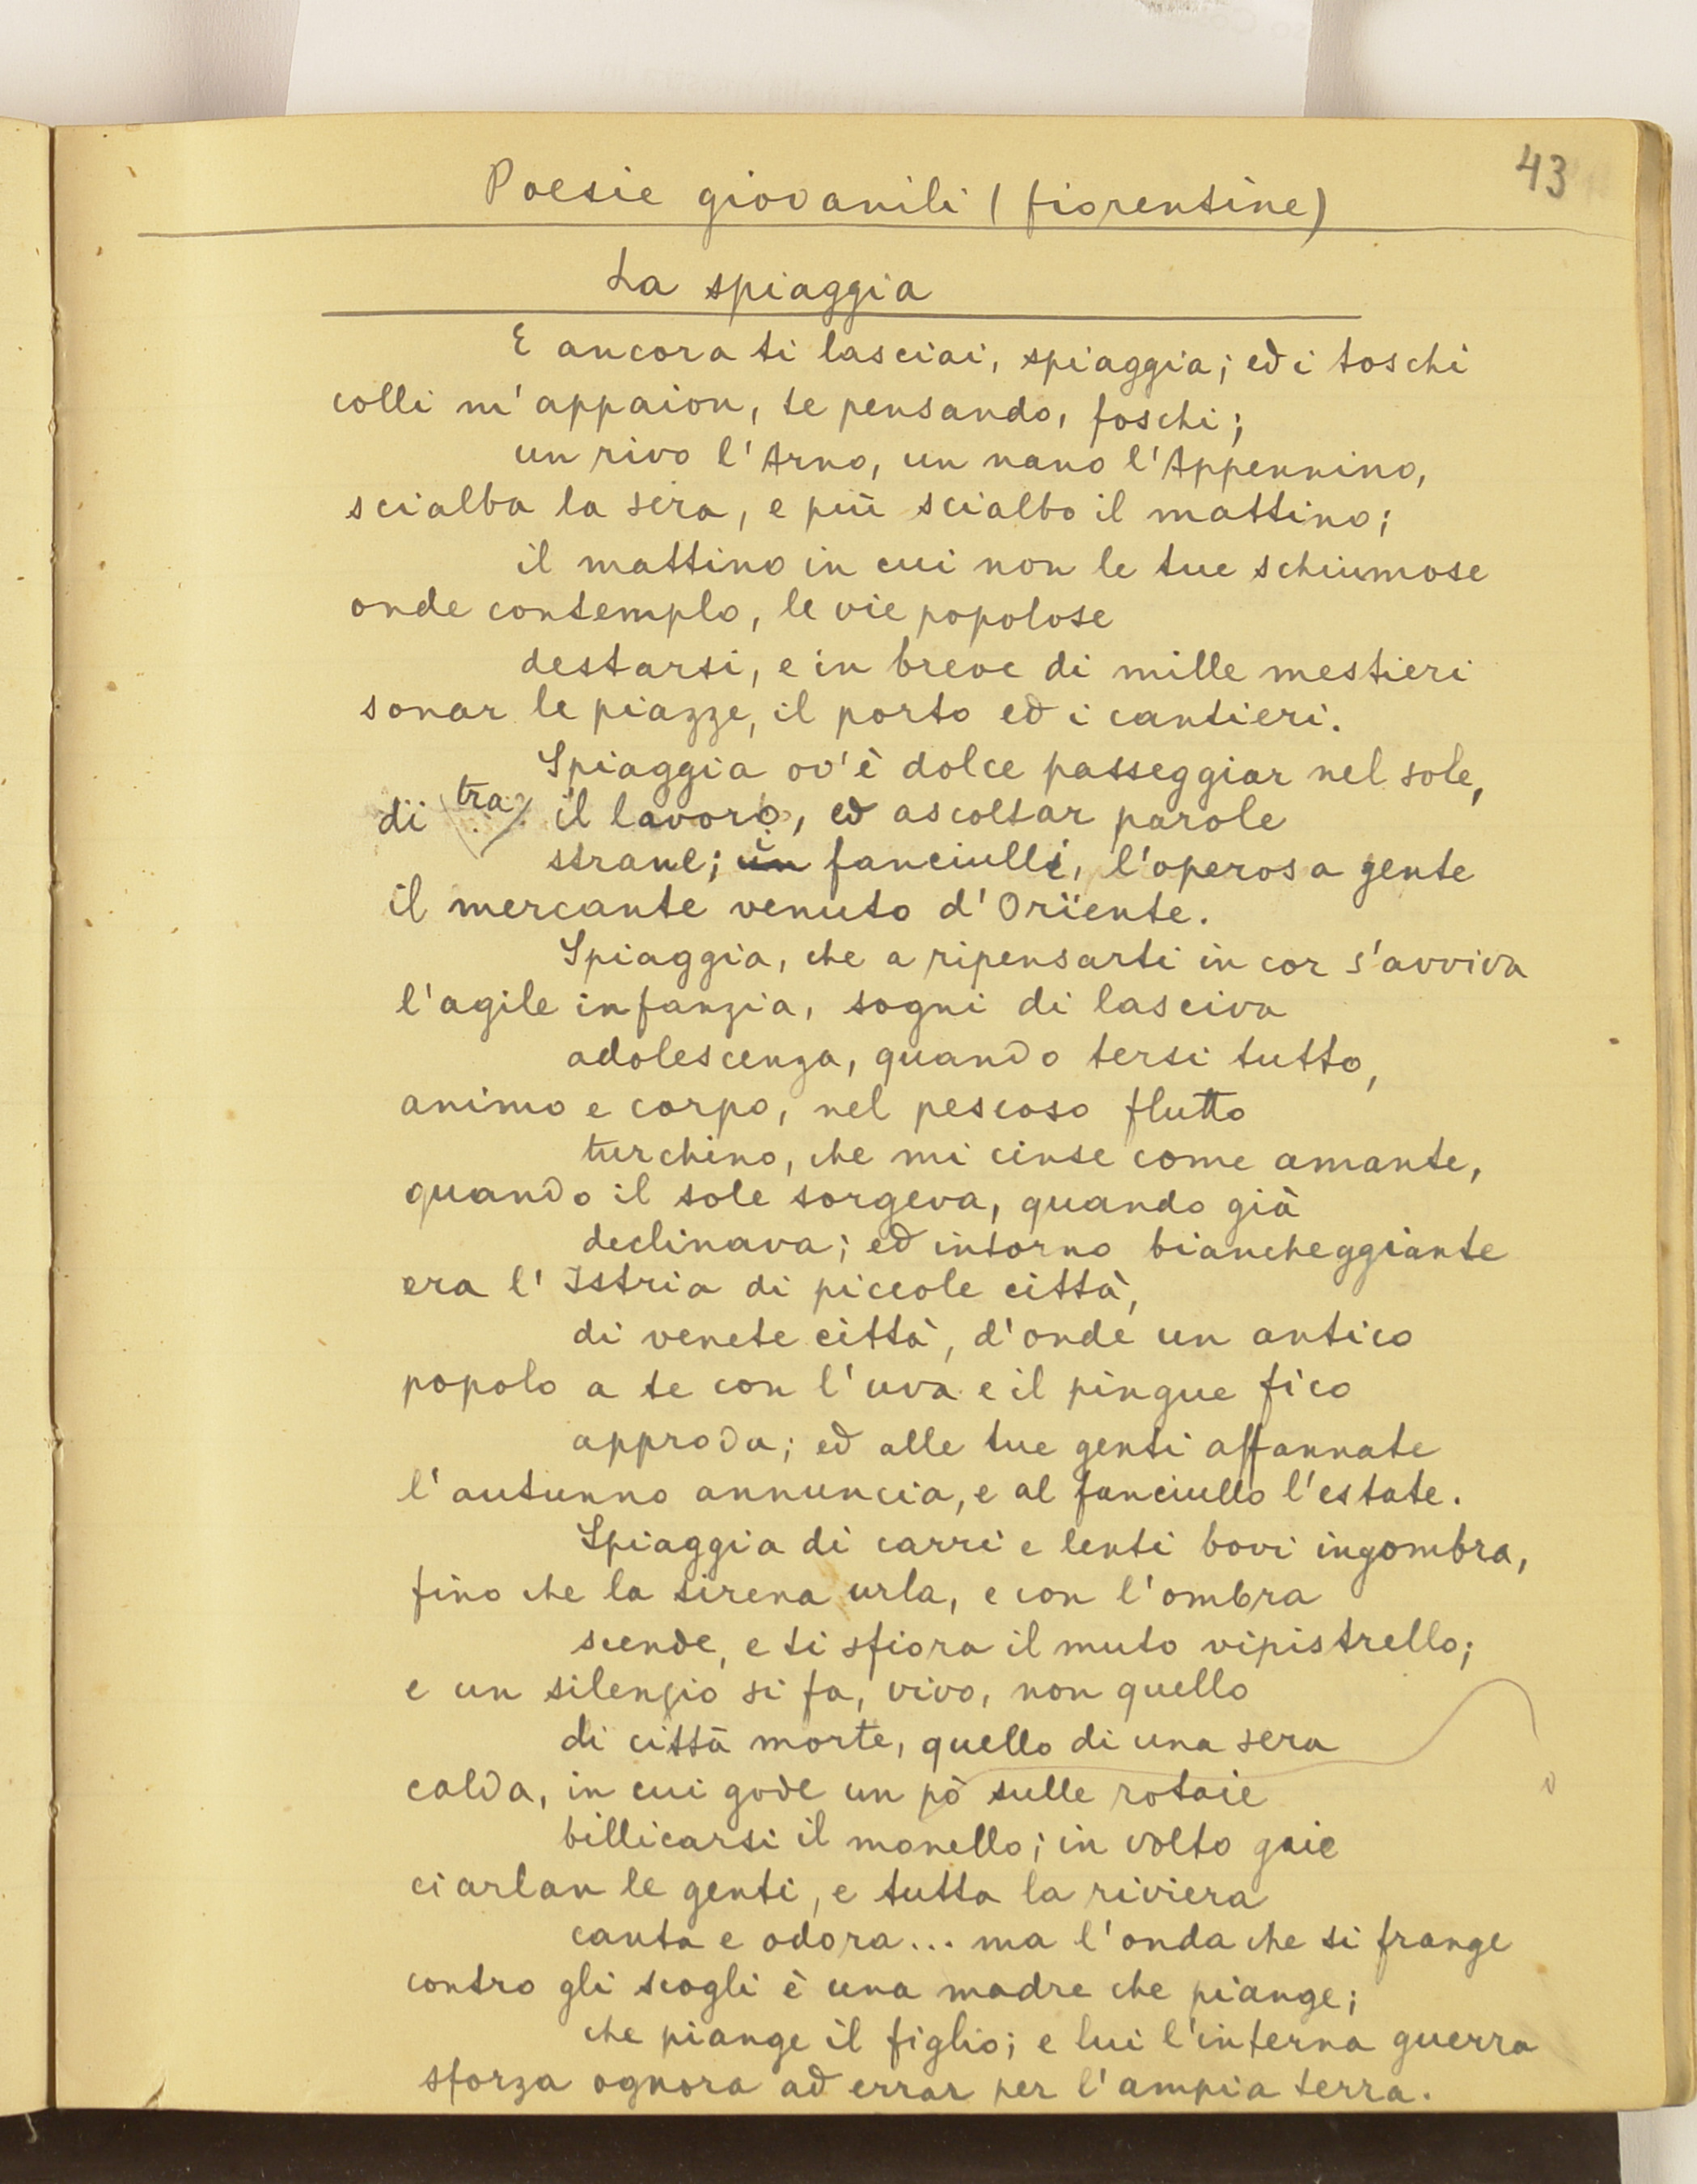 43
Poesie giovanili (fiorentine)
La spiaggia
E ancora ti lasciai, spiaggia; ed i toschi
colli m'appaion, te pensando, foschi;
un rivo l'Arno, un nano l'Appennino,
scialba la sera, e più scialbo il mattino;
il mattino in cui non le tue schiumose
onde contemplo, le vie popolose
destarsi, e in breve di mille mestieri
sonar le piazze, il porto ed i cantieri.
Spiaggia ov'è dolce passeggiar nel sole,
di tra il lavoro, ed ascoltar parole
strane; un fanciulli, l'operosa gente
il mercante venuto d'Orïente.
Spiaggia, che a ripensarti in cor s'avviva
l'agile infanzia, sogni di lasciva
adolescenza, quando tersi tutto,
animo e corpo, nel pescoso flutto
turchino, che mi cinse come amante,
quando il sole sorgeva, quando già
declinava; ed intorno biancheggiante
era l'Istria di piccole città,
di venete città, d'onde un antico
popolo a te con l'uva e il pingue fico
approda; ed alle tue genti affannate
l'autunno annuncia, e al fanciullo l'estate.
Spiaggia di carri e lenti bovi ingombra,
fino che la sirena urla, e con l'ombra
scende, e ti sfiora il muto vipistrello;
e un silenzio si fa, vivo, non quello
di città morte, quello di una sera
calda, in cui gode un pò sulle rotaie
billicarsi il monello; in volto gaie
ciarlan le genti, e tutta la riviera
canta e odora... ma l'onda che si frange
contro gli scogli è una madre che piange;
che piange il figlio; e lui l'interna guerra
sforza ognora ad errar per l'ampia terra.